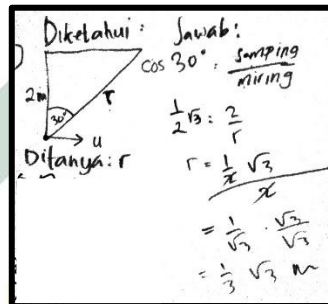 Diketahui :
2m
30°
r
u
Ditanya : r
Jawab :
cos 30° : samping / miring
1/2 √3 : 2/r
r = 1/2 √3 / 2
= 1/√3 · √3/√3
= 1/3 √3 m